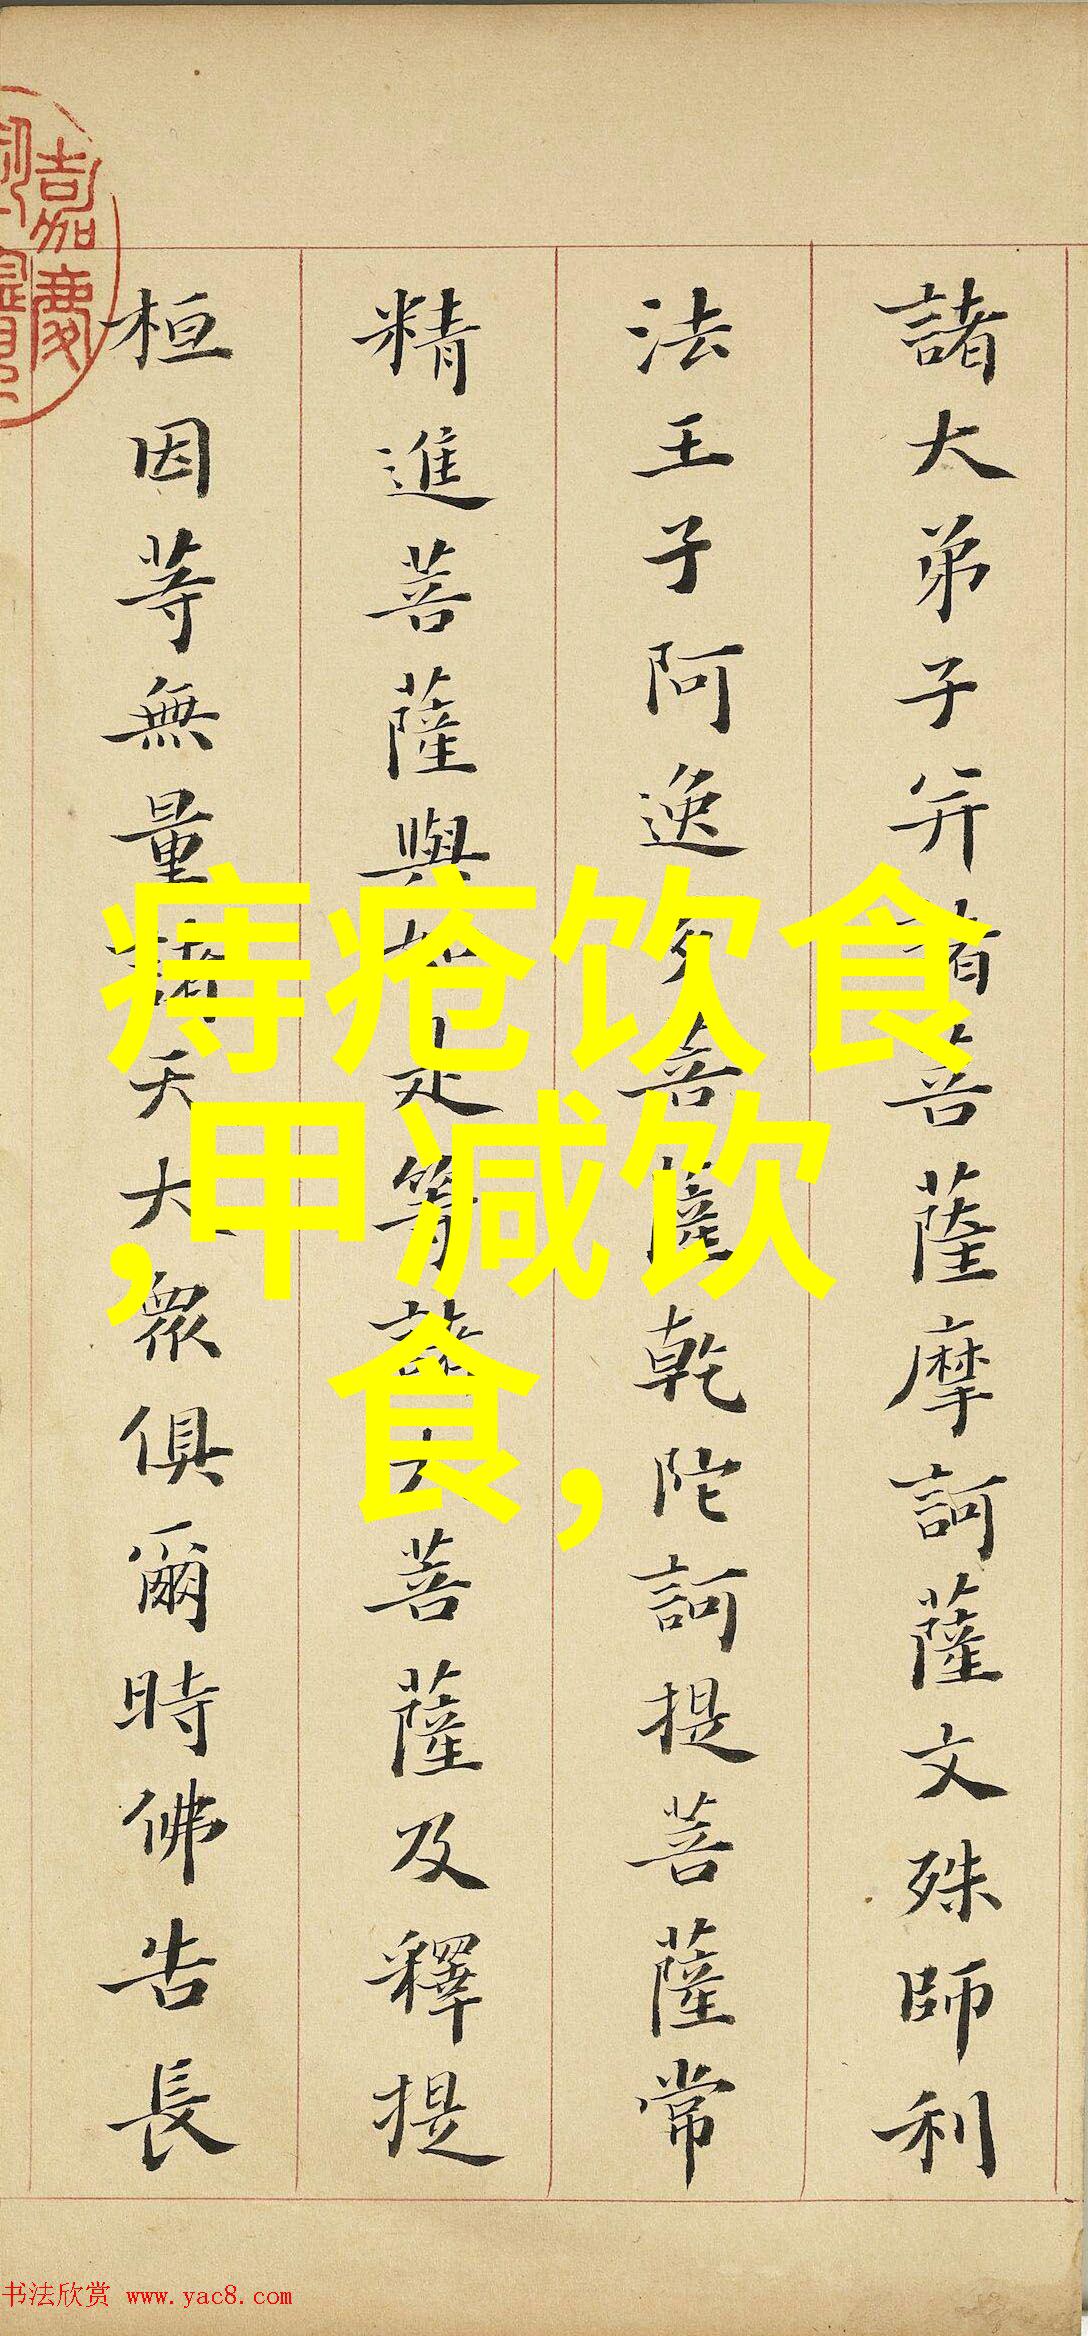 諸大弟子并諸菩薩摩訶薩文殊師利
法王子阿逸多菩薩乾陀訶提菩薩常
精進菩薩與如是等諸大菩薩及釋提
桓因等無量諸天大眾俱爾時佛告長
嘉慶
痔疮饮食
,甲减饮
食,
书法欣赏 www.yac8.com